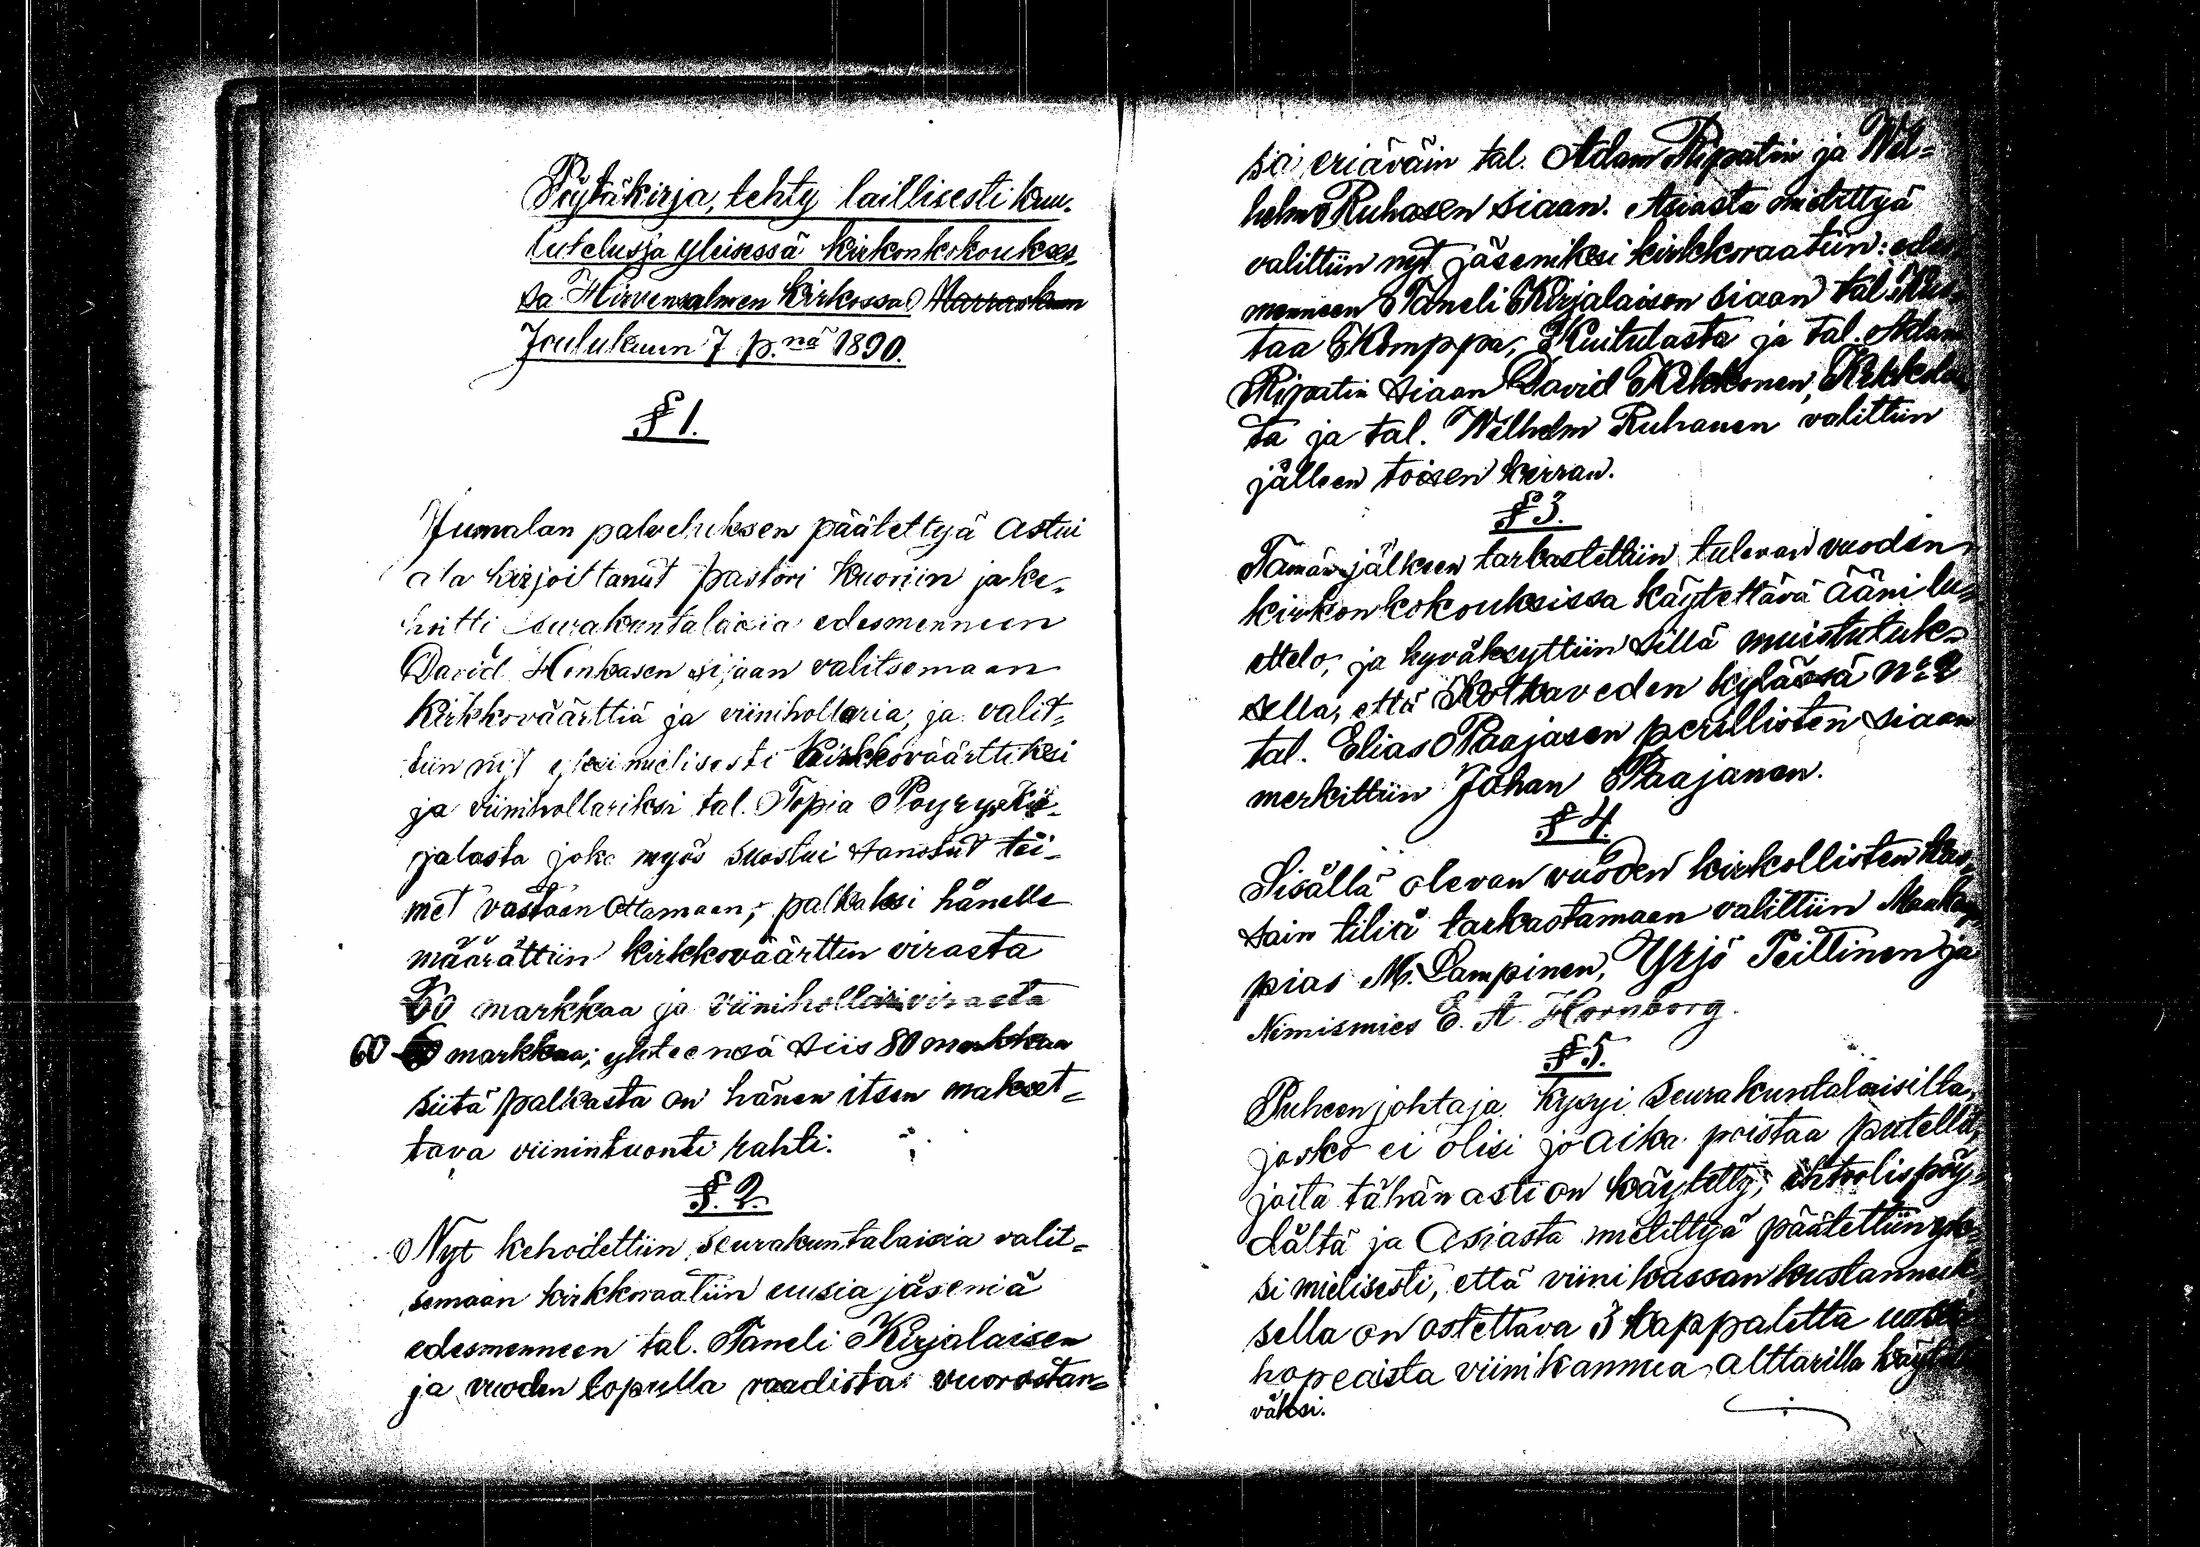 Pöytäkirja, tehty laillisesti kuu-
lutelussa yleisessä kirkonkokoukses-
sa Hirvensalmen kirkossa Marraskuun
Joulukuun 7 p.nä 1890.
§ 1.
Jumalan palveluksen päätettyä astui
ala kirjoittanut pastori kuoriin ja ke-
hoitti seurakuntalaisia edesmenneen
David Honkasen sijaan valitsemaan
kirkkoväärttiä ja viinihollaria, ja valit-
tiin nyt yksimielisesti kirkkoväärttiksi
ja viinihollariksi tal. Topia Pöyry
jalasta joka myös suostui sanotut toi-
met vastaan ottamaan; palkaksi hänelle
määrättiin kirkkoväärttin virasta
markkaa ja viinihollari virasta
60 markkaa; yhteensä siis 80 markkaa
siitä palkasta on hänen itsen makset-
tava viinintuonti rahti.
§. 2.
Nyt kehoitettiin seurakuntalaisia valit-
semaan kirkkoraatiin uusia jäseniä
edesmenneen tal. Taneli Kirjalaisen
ja vuoden lopulla raadista vuorostan-
sa eriäväin tal. Adam Ripatin ja Wil-
helm Ruhasen siaan. Asiasta mietittyä
valittiin nyt jäseniksi kirkkoraatiin: edes
menneen Taneli Kirjalaisen siaan tal.
taa Komppa, Kuitulasta ja tal. Adam
Ripatin siaan David Kekkonen,
ta ja tal. Wilhelm Ruhanen valittiin
jälleen toisen kerran.
§ 3.
Tämän jälkeen tarkastettiin tulevan vuoden
kirkonkokouksissa käytettävä ääni lu-
ettelo, ja hyväksyttiin sillä muistutuk-
sella, että Kotkaveden kylässä No 2
tal. Elias Paajasen perillisten siaan
merkittiin Johan Paajanen.
§ 4.
Sisällä olevan vuoden kirkollisten kas-
sain tiliä tarkastamaan valittiin Maakaup-
pias M. Lampinen, Yrjö Teittinen ja
Nimismies E. A. Hornborg.
§ 5.
Puheenjohtaja kysyi seurakuntalaisilta,
josko ei olisi jo aika poistaa putellit,
joita tähän asti on käytetty, ehtoolispöy-
dältä ja asiasta mietittyä päätettiin yk-
si mielisesti, että viinikassan kustannuk-
sella on ostettava 3 kappaletta uutta
hopeaista viinikannua alttarilla käytet
väksi.